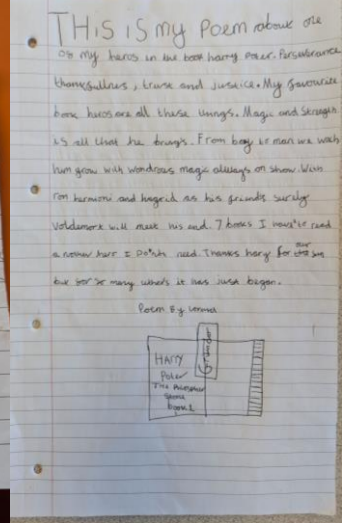 THIS iS my Poem about one
of my heros in the book harry Poter. Perseverance
thanksfullnes, trust and justice. My favourite
book heros are all these things. Magic and Strength
is all that he brings. From boy to man we watch
him grow with wondrous magic always on show. With
ron hermioni and hagrid as his friends surely
voldemort will meet his end. 7 books I have to read
a nother hero I Dont need. Thanks hary for the
but for so many others it has just began.
Poem By
HARRY
Poter
The
Stone
book 1